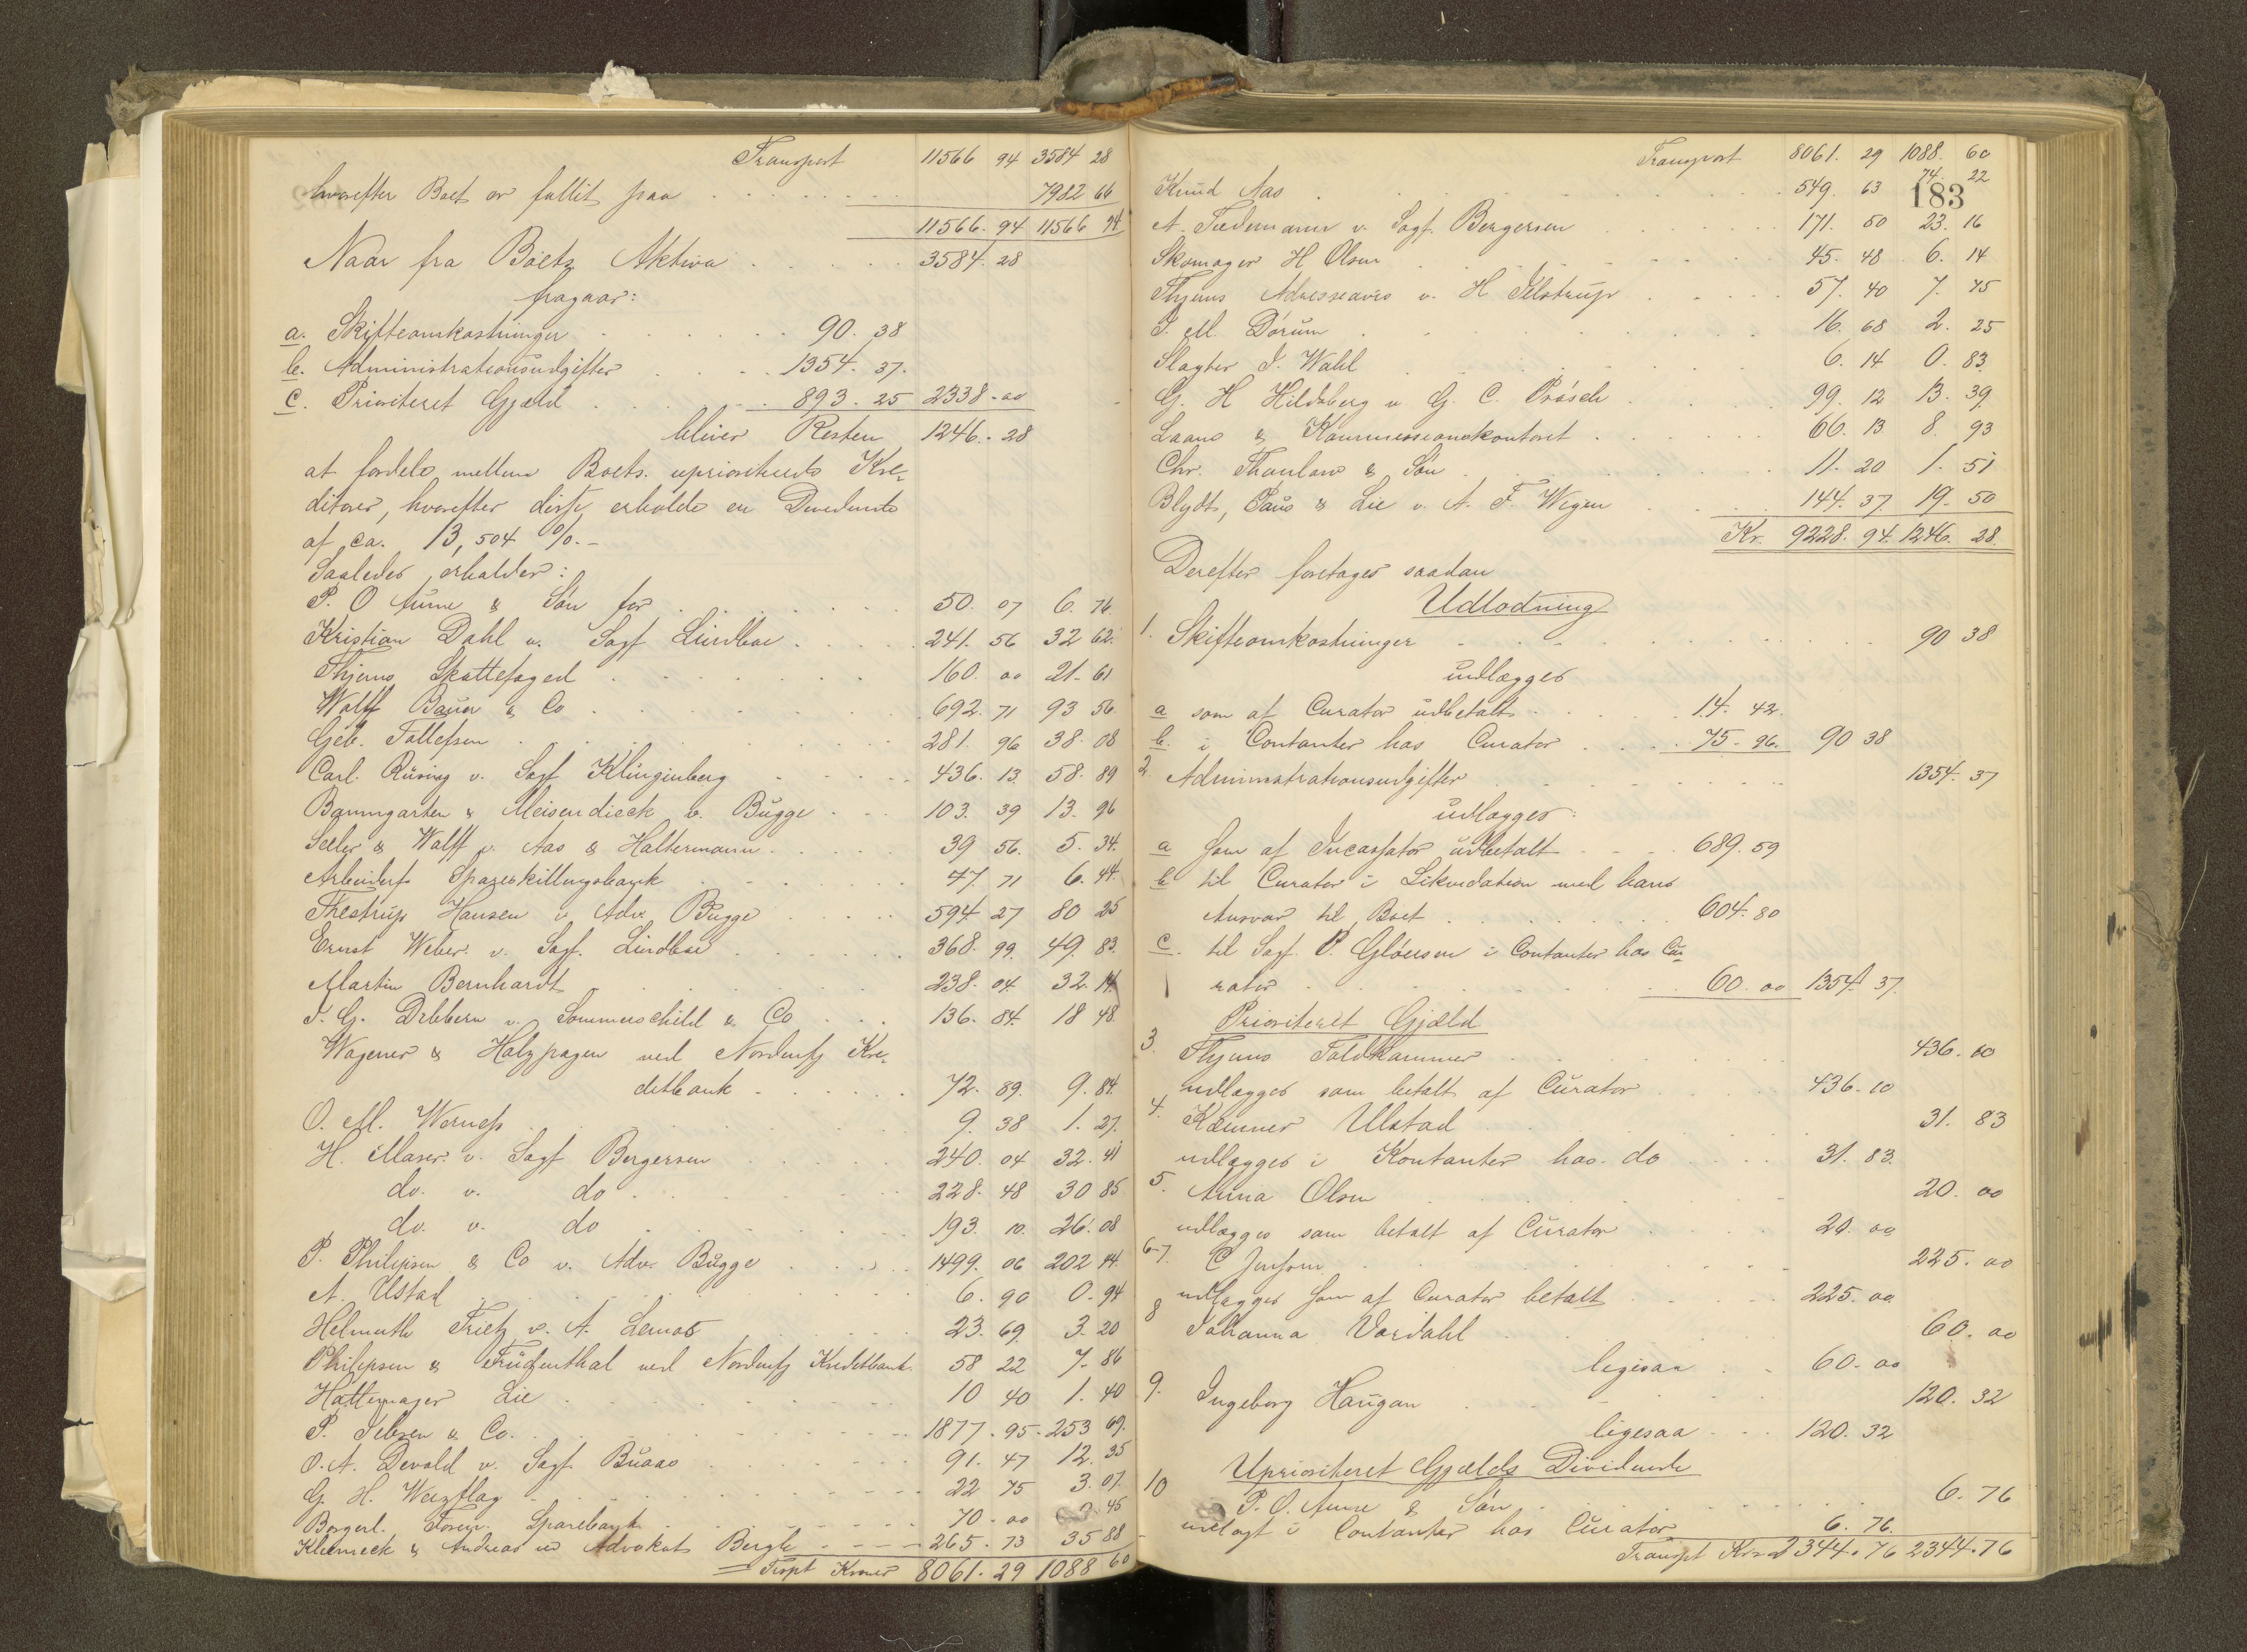 Transport 11566 94 3584 28
hvorefter Boet er fallit paa 7982 66
11566. 94 11566 94
Naar fra Boets Aktiva 3584. 28
fragaar:
a. Skifteomkostninger 90. 38
b. Administrationsudgifter 1354. 37.
c. Prioriteret Gjæld 893. 25 2338. 00
bliver Resten 1246. 28
at fordele mellem Boets uprioriterte Kre-
ditorer, hvorefter disse erholde en Dividende
af ca. 13,504 %.-
Saaledes erholder:
P. O Aune & Søn for 50. 07 6. 76.
Kristian Dahl v. Sagf Lindboe 241. 56 32 62.
Thjems Skattefoged 160. 00 21. 61
Wolff Bauer & Co 692. 71 93 56
Geb. Tollefsen 281. 96 38. 08
Carl Rüsing v. Sagf Klingenberg 436. 13. 58. 89
Baumgarten & Meisendieck v. Bugge 103. 39 13. 96
Seeler & Wolff v. Aas & Haltermann 39 56. 5. 34.
Arbeiderf Spareskillingsbank 47. 71 6. 44.
Thestrup Hansen v Adv. Bugge 594. 27 80 25
Ernst Weber v. Sagf. Lindboe 368. 99. 49. 83.
Martin Bernhardt 238. 04. 32. 14
J. G. Debbern v. Sommerschild & Co 136. 84. 18 48.
Wagener & Holzpagen ved Nordenfj Kre-
ditbank 72. 89. 9. 84.
O. M. Werness 9. 38 1. 27.
H. Maser v. Sagf Bergersen 240. 04 32. 41
do. v. do 228. 48 30 85
do. v. do 193. 10. 26. 08
P. Philipsen & Co v. Adv. Bugge 1499. 06 202 44.
A. Ustad 6. 90 0. 94
Helmuth Tietz v. A. Lemos 23. 69. 3. 20
Philipsen & ved Nordenfj Kreditbank. 58 22 7. 86
Hattemager Lie 10 40 1. 40
P. Jebsen & Co. 1877. 95. 253 69.
O. A. Devold v. Sagf. Buaas 91. 47 12. 35
G. H. 22 75 3. 07.
Borgerl. Foren. Sparebank 70. 00 9. 45
& Andreas ved Advokat Bergh 265. 73 35 88
Trspt Kroner 8061. 29 1088 60
Transport 8061. 29 1088. 60
183
Knud Aas 549. 63 74. 22
A. Tiedemann v. Sagf. Bergersen 171. 50 23. 16
Skomager H Olsen 45. 48. 6. 14
Thjems Adresseavis v. H Jelstrup 57. 40 7. 75
J. M. Dórum 16. 68 2. 25
Slagter J. Wahl 6. 14 0. 83.
G. H Hildsberg v G. C. Prösch 99. 12 13. 39
Laane & Kommissionskontoret 66. 13. 8. 93
Chr. Thaulow & Søn 11. 20 1. 51
Blydt, Paus & Lie v. A. F. Wigen 144. 37. 19. 50
Kr. 9228. 94. 1246. 28.
Derefter foretages saadan
Udlodning
1. Skifteomkostninger 90 38
udlægges
a som af Curator udbetalt 14. 42.
b. i Contanter hos Curator 75. 96. 90 38
2. Administrationsudgifter 1354. 37
udlægges:
a som af Incassator udbetalt 689. 59
b til Curator i Likvidation med hans
Ansvar til Boet 604. 80
c. til Sagf. P. Gløersen i Contanter hos Cu-
rator 60. 00 1354. 37.
Prioriteret Gjæld
3. Thjems Toldkammer 436. 10
udlægges som betalt af Curator 436. 10
4. Kæmner Ulstad 31. 83
udlægges i Kontanter hos do 31. 83.
5. Anna Olsen 20. 00
udlægges som betalt af Curator 20. 00
6-7. C Jenssen 225. 00
udlægges som af Curator betalt 225. 00
8 Johanna Vardahl 60. 00
ligesaa 60. 00
9. Ingeborg Haugan 120. 32
ligesaa 120. 32
Uprioriteret Gjælds Dividende
10 P. O. Aune & Søn 6. 76
udlagt i Contanter hos Curator 6. 76.
Transpt Kr 2344. 76 2344. 76